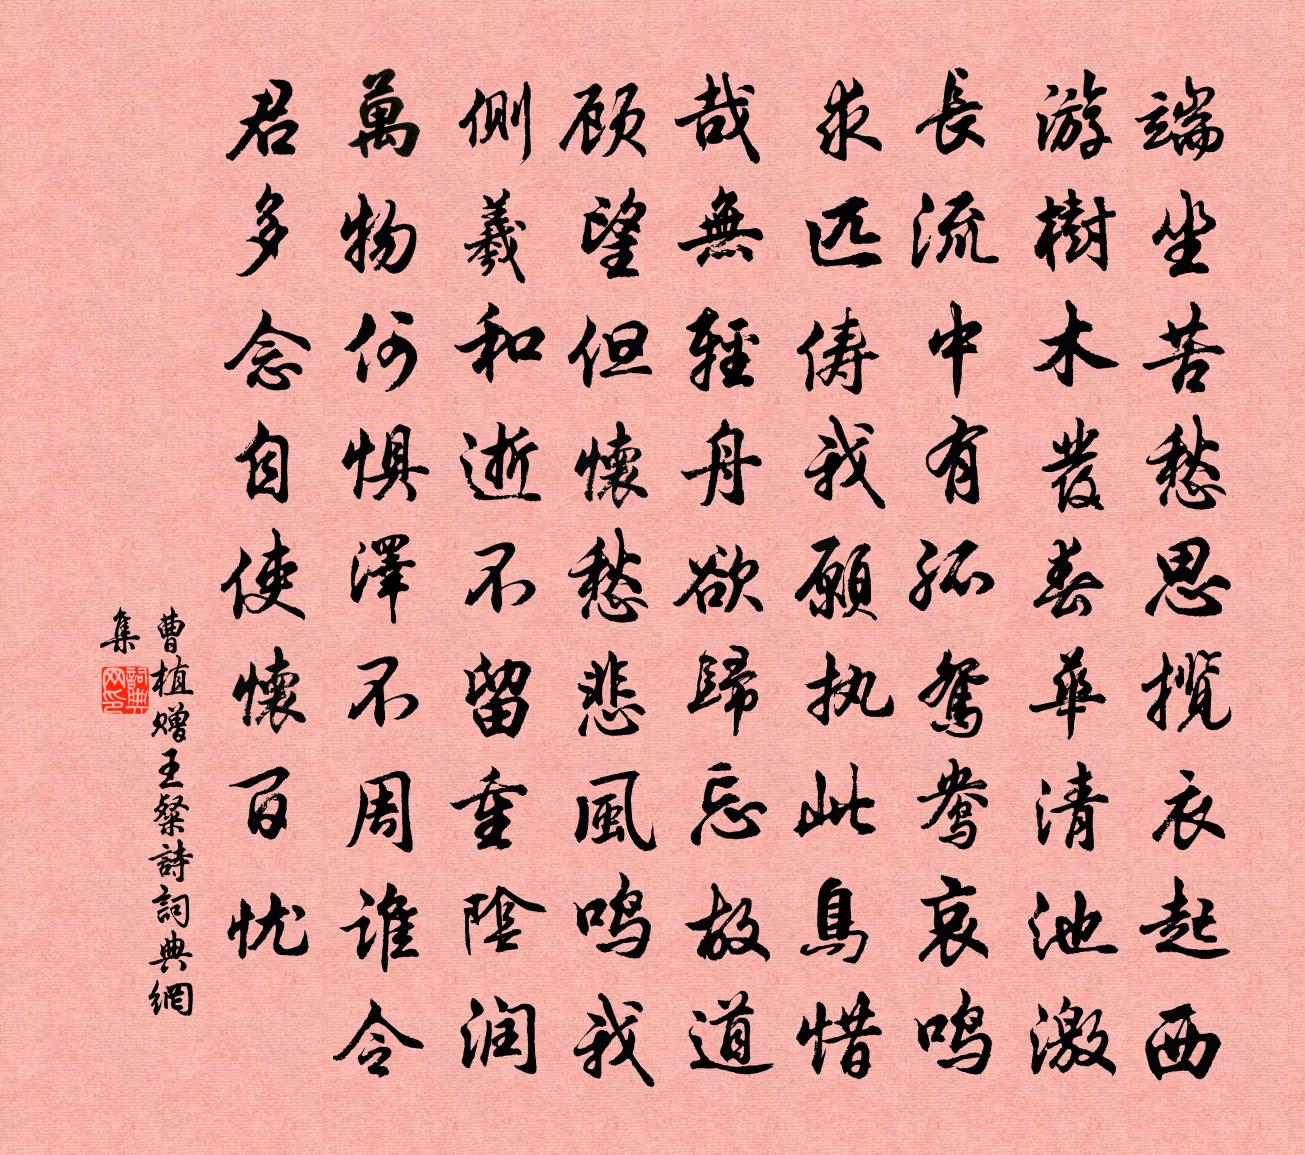 端坐苦愁思攬衣起西
游樹木發春華清池激
長流中有孤鴛鴦哀鳴
求匹儔我願执此鳥惜
哉無輕舟欲歸忘故道
顾望但懷愁悲風鸣我
側羲和逝不留重陰润
萬物何惧澤不周谁令
君多念自使懷百忧
曹植赠王粲詩詞典網
集
詞典网印